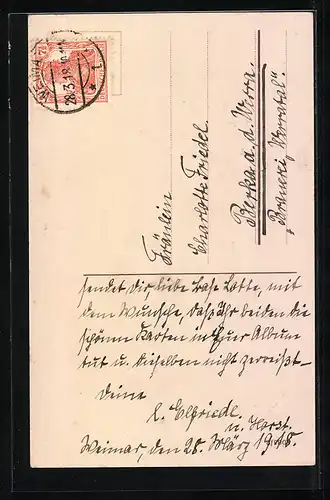 WEIMAR
28.3.18.
Fräulein
Charlotte Friedel.
Berka a. d. Werra.
sendet Dir, liebe Base Lotte, mit
dem Wunsche, daß Ihr beiden die
schönen Karten in Euer Album
tut u. dieselben nicht zerreißt.
Deine
l. Elfriede
u. Horst.
Weimar, den 28. März 1918.